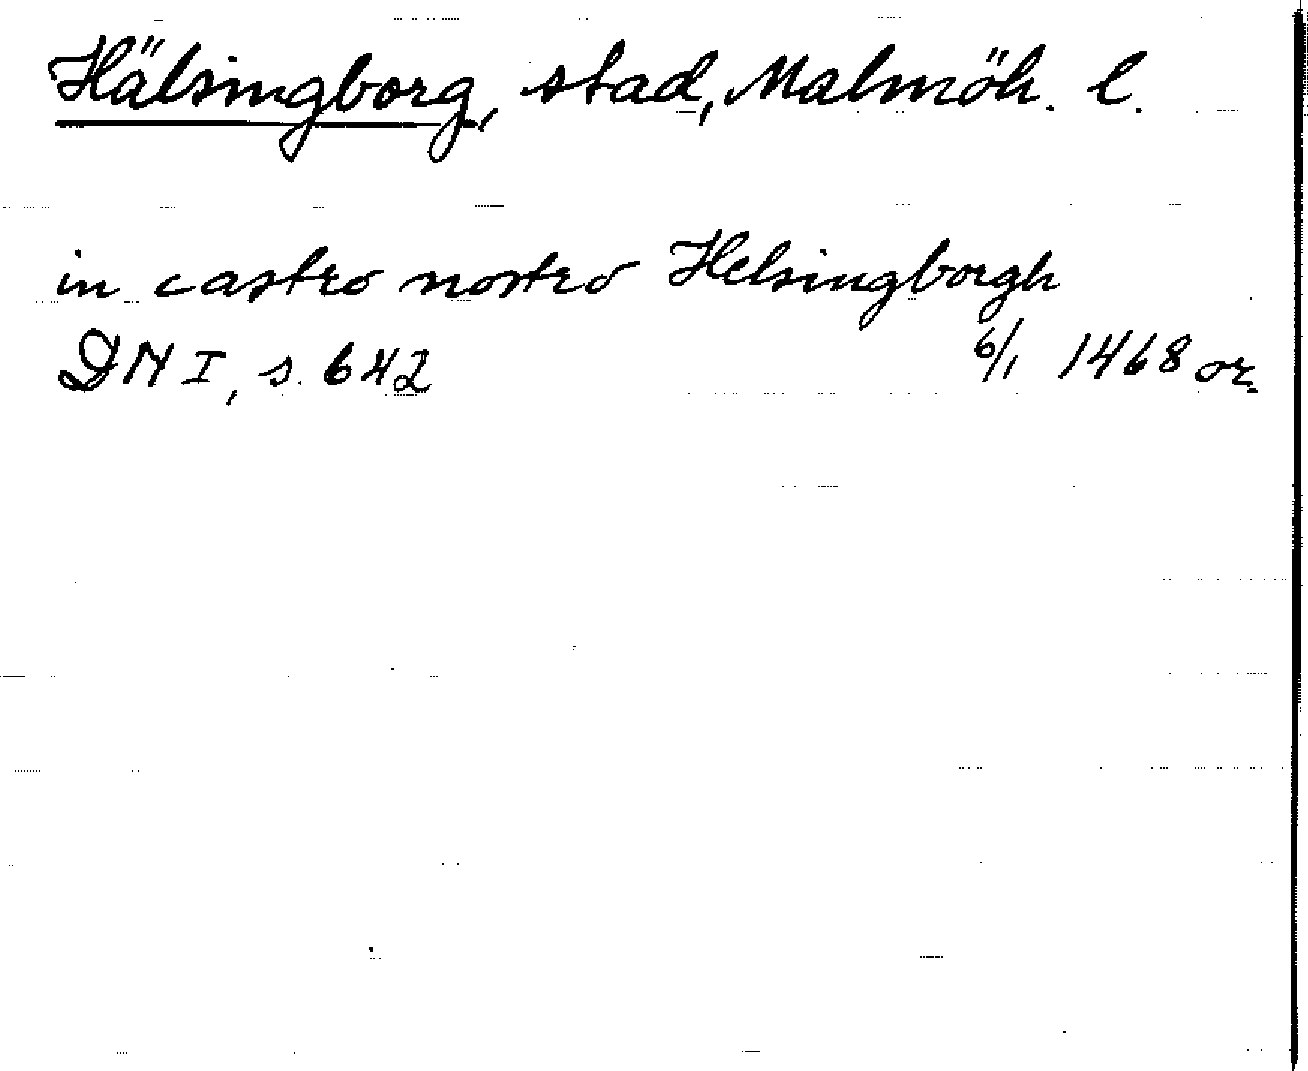 Hälsingborg, stad, Malmöh. l.
in castro nostro Helsingborgh
DN I, s. 642 6/1 1468 or.